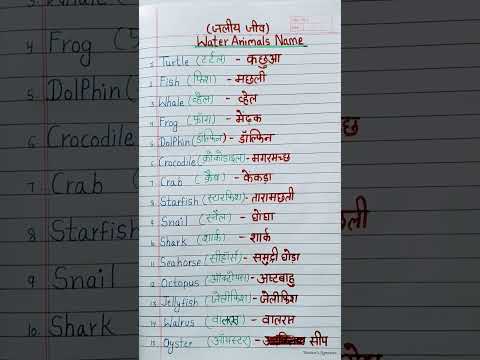 (जलीय जीव)
Water Animals Name
1. Turtle (टर्टल) - कछुआ
2. Fish (फिश) - मछली
3. Whale (व्हेल) - व्हेल
4. Frog (फ्रॉग) - मेंढक
5. Dolphin (डॉल्फिन) - डॉल्फिन
6. Crocodile (क्रोकोडाइल) - मगरमच्छ
7. Crab (क्रैब) - केकड़ा
8. Starfish (स्टारफिश) - तारामछली
9. Snail (स्नैल) - घोंघा
10. Shark (शार्क) - शार्क
11. Seahorse (सीहॉर्स) - समुद्री घोड़ा
12. Octopus (ऑक्टोपस) - अष्टबाहु
13. Jellyfish (जेलीफिश) - जेलीफिश
14. Walrus (वालरस) - वालरस
15. Oyster (ऑयस्टर) - सीप
4 Frog
5 DolPhin
6 Crocodile
7 Crab
8 Starfish
9 Snail
10. Shark